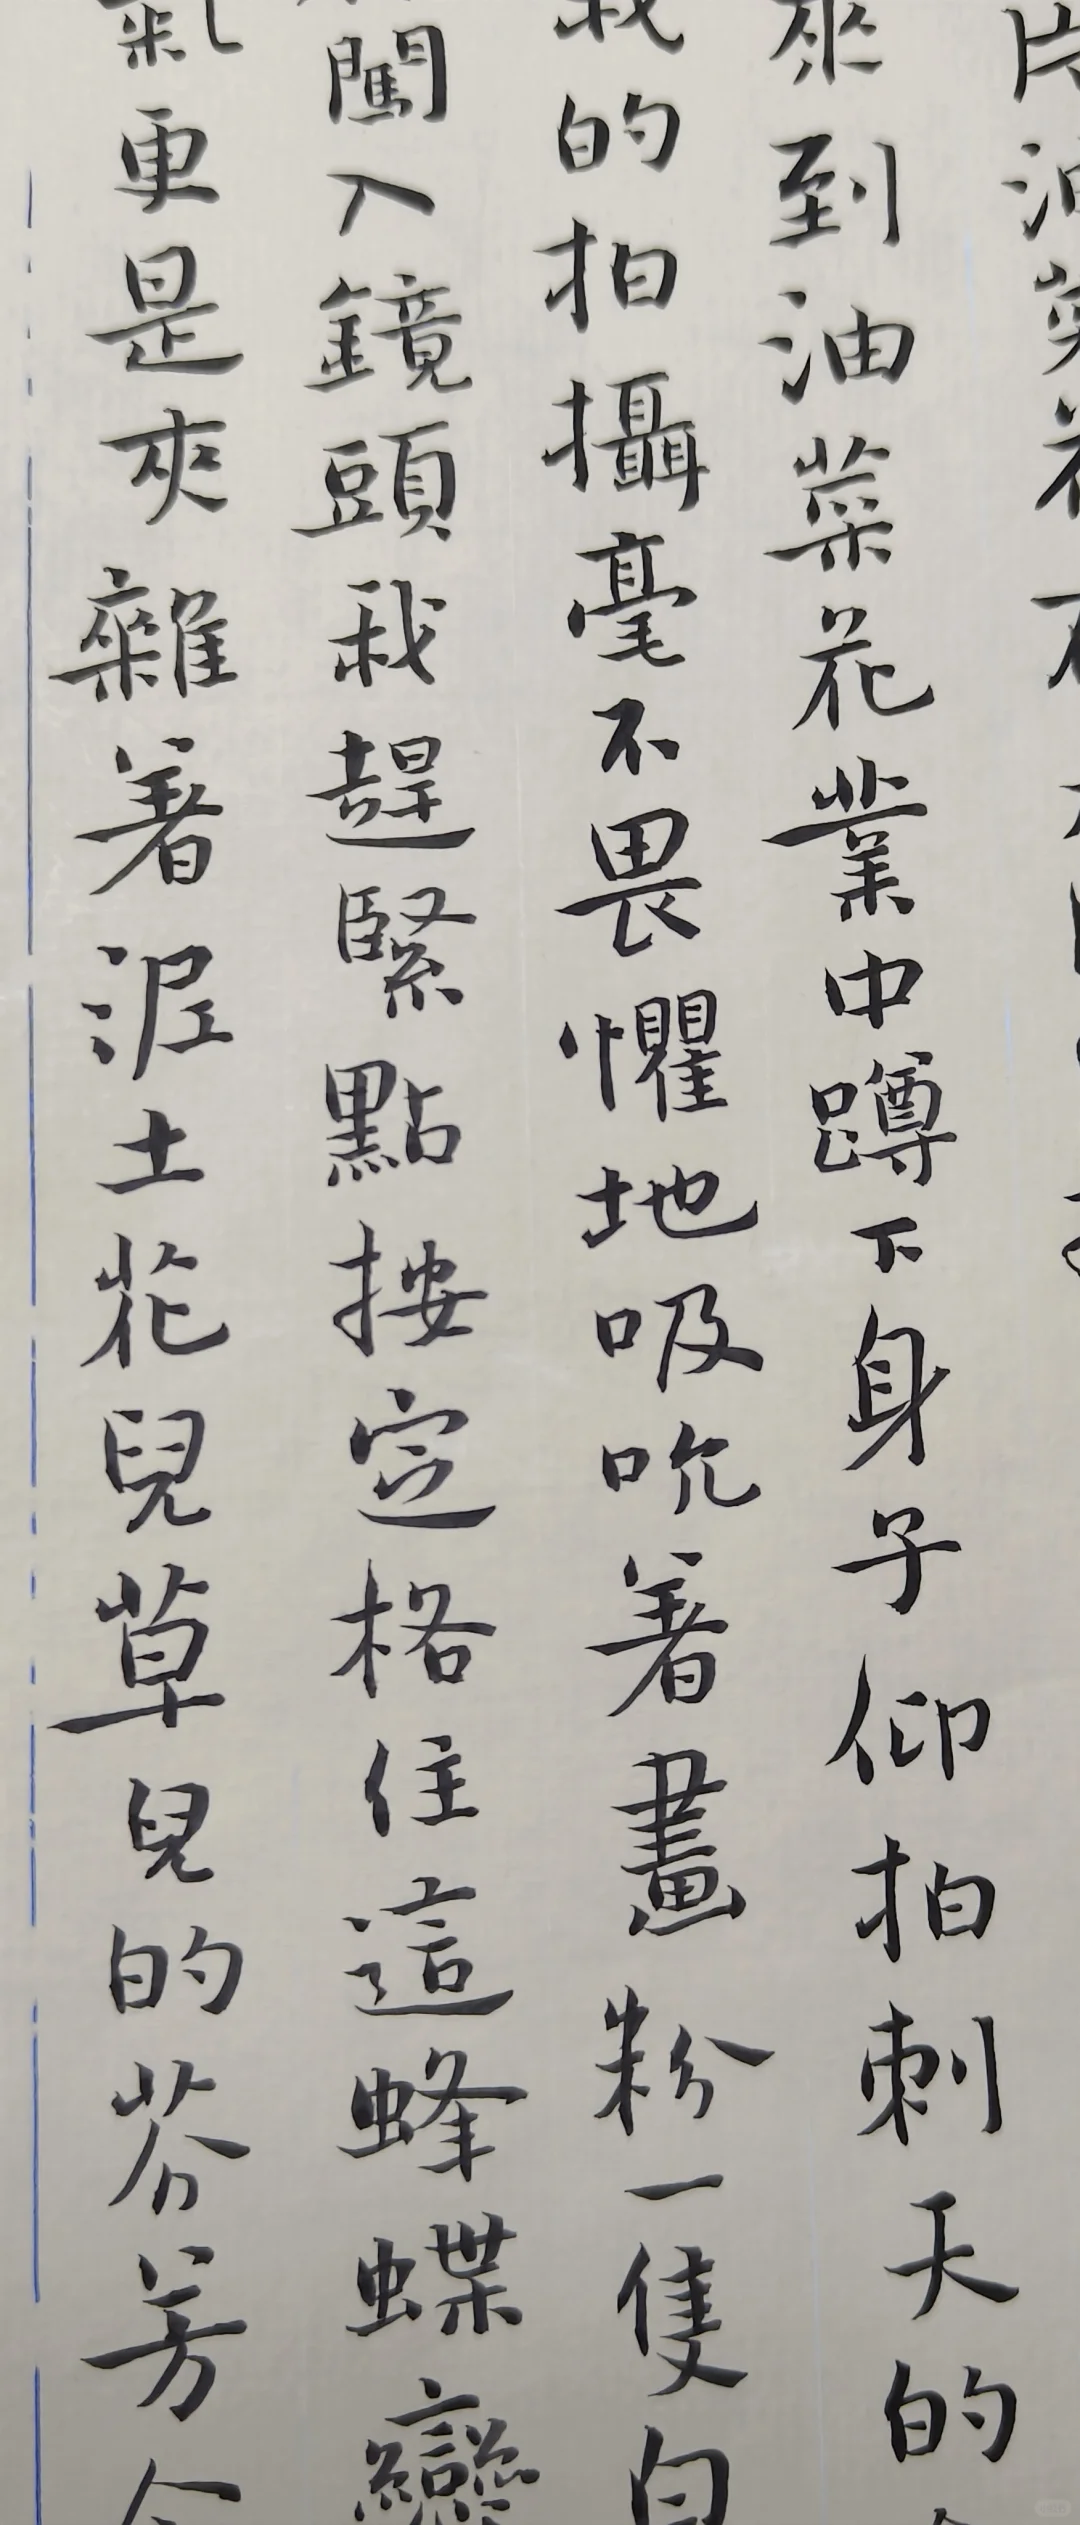 片油菜花
來到油菜花業中蹲下身子仰拍刺天的
我的拍攝毫不畏懼地吸吮著畫粉一隻白
闖入鏡頭我趕緊點按定格住這蜂蝶戀
氣更是夾雜著泥土花兒草兒的芬芳